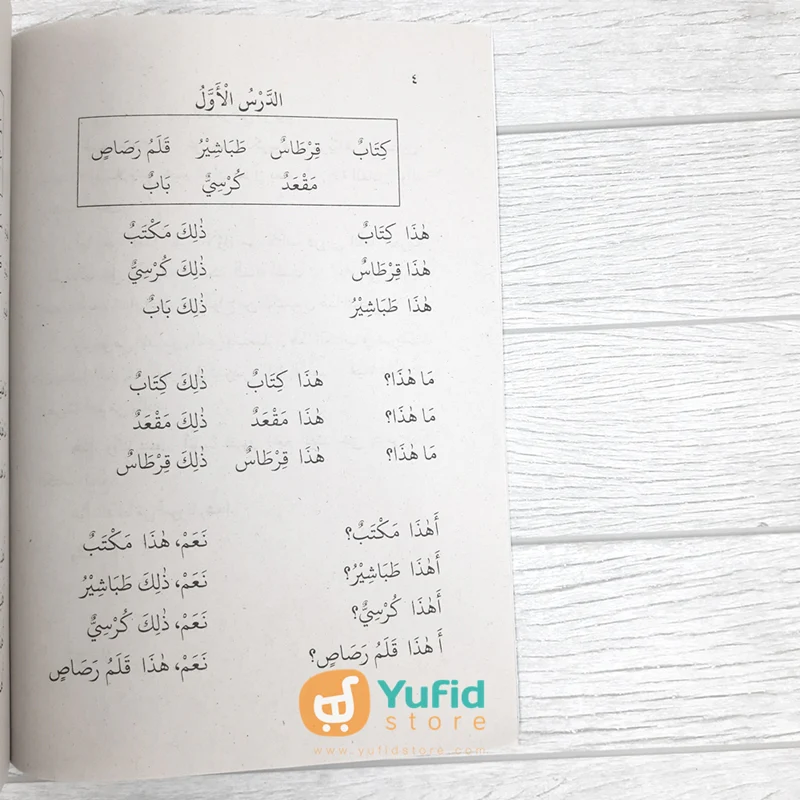 ٤
الدَّرْسُ الْأَوَّلُ
كِتَابٌ قِرْطَاسٌ طَبَاشِيْرُ قَلَمُ رَصَاصٍ
مَقْعَدٌ كُرْسِيٌّ بَابٌ
هٰذَا كِتَابٌ ذٰلِكَ مَكْتَبٌ
هٰذَا قِرْطَاسٌ ذٰلِكَ كُرْسِيٌّ
هٰذَا طَبَاشِيْرُ ذٰلِكَ بَابٌ
مَا هٰذَا؟ هٰذَا كِتَابٌ ذٰلِكَ كِتَابٌ
مَا هٰذَا؟ هٰذَا مَقْعَدٌ ذٰلِكَ مَقْعَدٌ
مَا هٰذَا؟ هٰذَا قِرْطَاسٌ ذٰلِكَ قِرْطَاسٌ
أَهٰذَا مَكْتَبٌ؟ نَعَمْ، هٰذَا مَكْتَبٌ
أَهٰذَا طَبَاشِيْرُ؟ نَعَمْ، ذٰلِكَ طَبَاشِيْرُ
أَهٰذَا كُرْسِيٌّ؟ نَعَمْ، ذٰلِكَ كُرْسِيٌّ
أَ هٰذَا قَلَمُ رَصَاصٍ؟ نَعَمْ، هٰذَا قَلَمُ رَصَاصٍ
Yufid
store
www.yufidstore.com